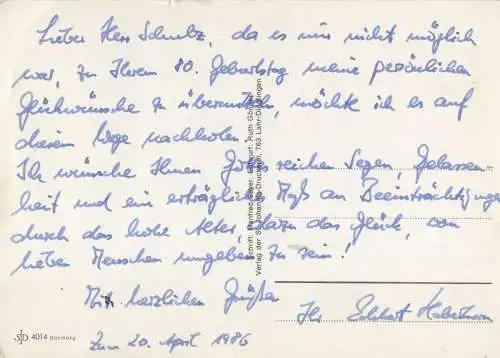 Lieber Herr Schulz, da es mir nicht möglich
war, zu Ihrem 80. Geburtstag meine persönlichen
Glückwünsche zu übermitteln, möchte ich es auf
diesem Wege nachholen.
Ihr wünsche Ihnen Gottes reichen Segen, Gelassen-
heit und ein erträgliches Maß an Beeinträchtigungen
durch das hohe Alter, dazu das Glück, von
lieben Menschen umgeben zu sein!
Mit herzlichen Grüßen
Ihr Eckhart
Zum 20. April 1986
SJD 4014 Germany
Verlag der St.-Johannis-Druckerei, 763 Lahr-Dinglingen